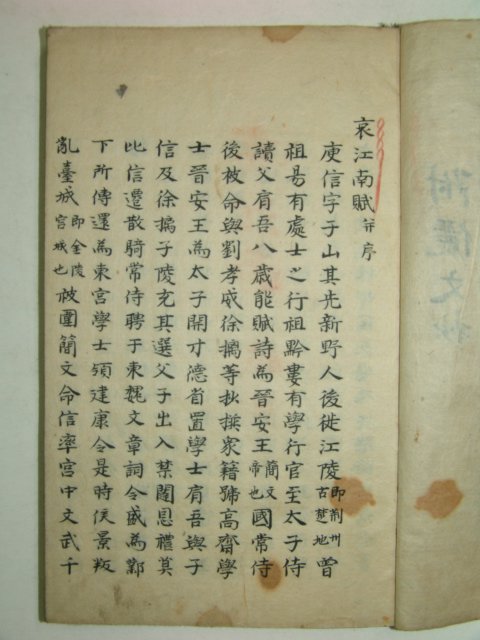 儷文抄
哀江南賦并序
庾信字子山其先新野人後徙江陵即荆州古楚地曾
祖易有處士之行祖黔婁有學行官至太子侍
讀父肩吾八歲能賦詩為晉安王簡文帝也國常侍
後被命與劉孝威徐摛等抄撰衆籍號高齋學
士晉安王為太子開才德省置學士肩吾與子
信及徐摛子陵充其選父子出入禁闥恩禮莫
比信遷散騎常侍聘于東魏文章詞令盛為鄴
下所傳還為東宮學士領建康令是時侯景叛
亂臺城即金陵宮城也被圍簡文命信率宮中文武千